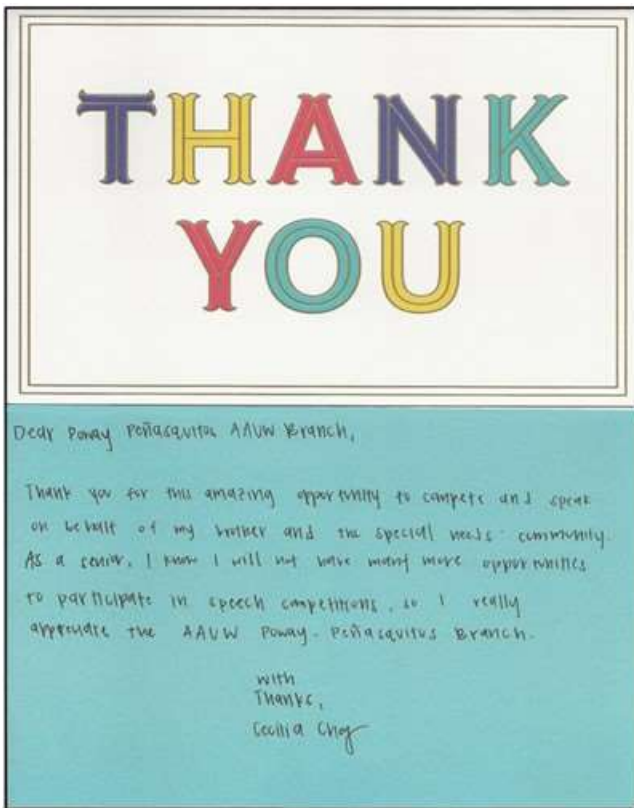 THANK
YOU
Dear Poway Peñasquitos AAUW Branch,
Thank you for this amazing opportunity to compete and speak
on behalf of my brother and the special needs community.
As a senior, I know I will not have many more opportunities
to participate in speech competitions, so I really
appreciate the AAUW Poway-Peñasquitos Branch.
with
Thanks,
Cecilia